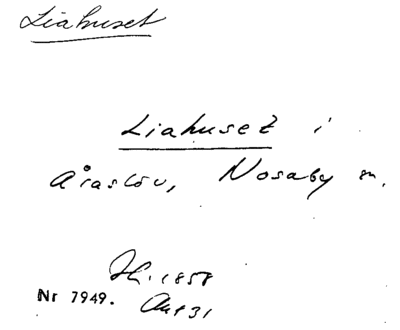 Liahuset
Liahuset i
Araslöv, Nosaby sn.
Hf. 1858
Nr 7949. Akt 31